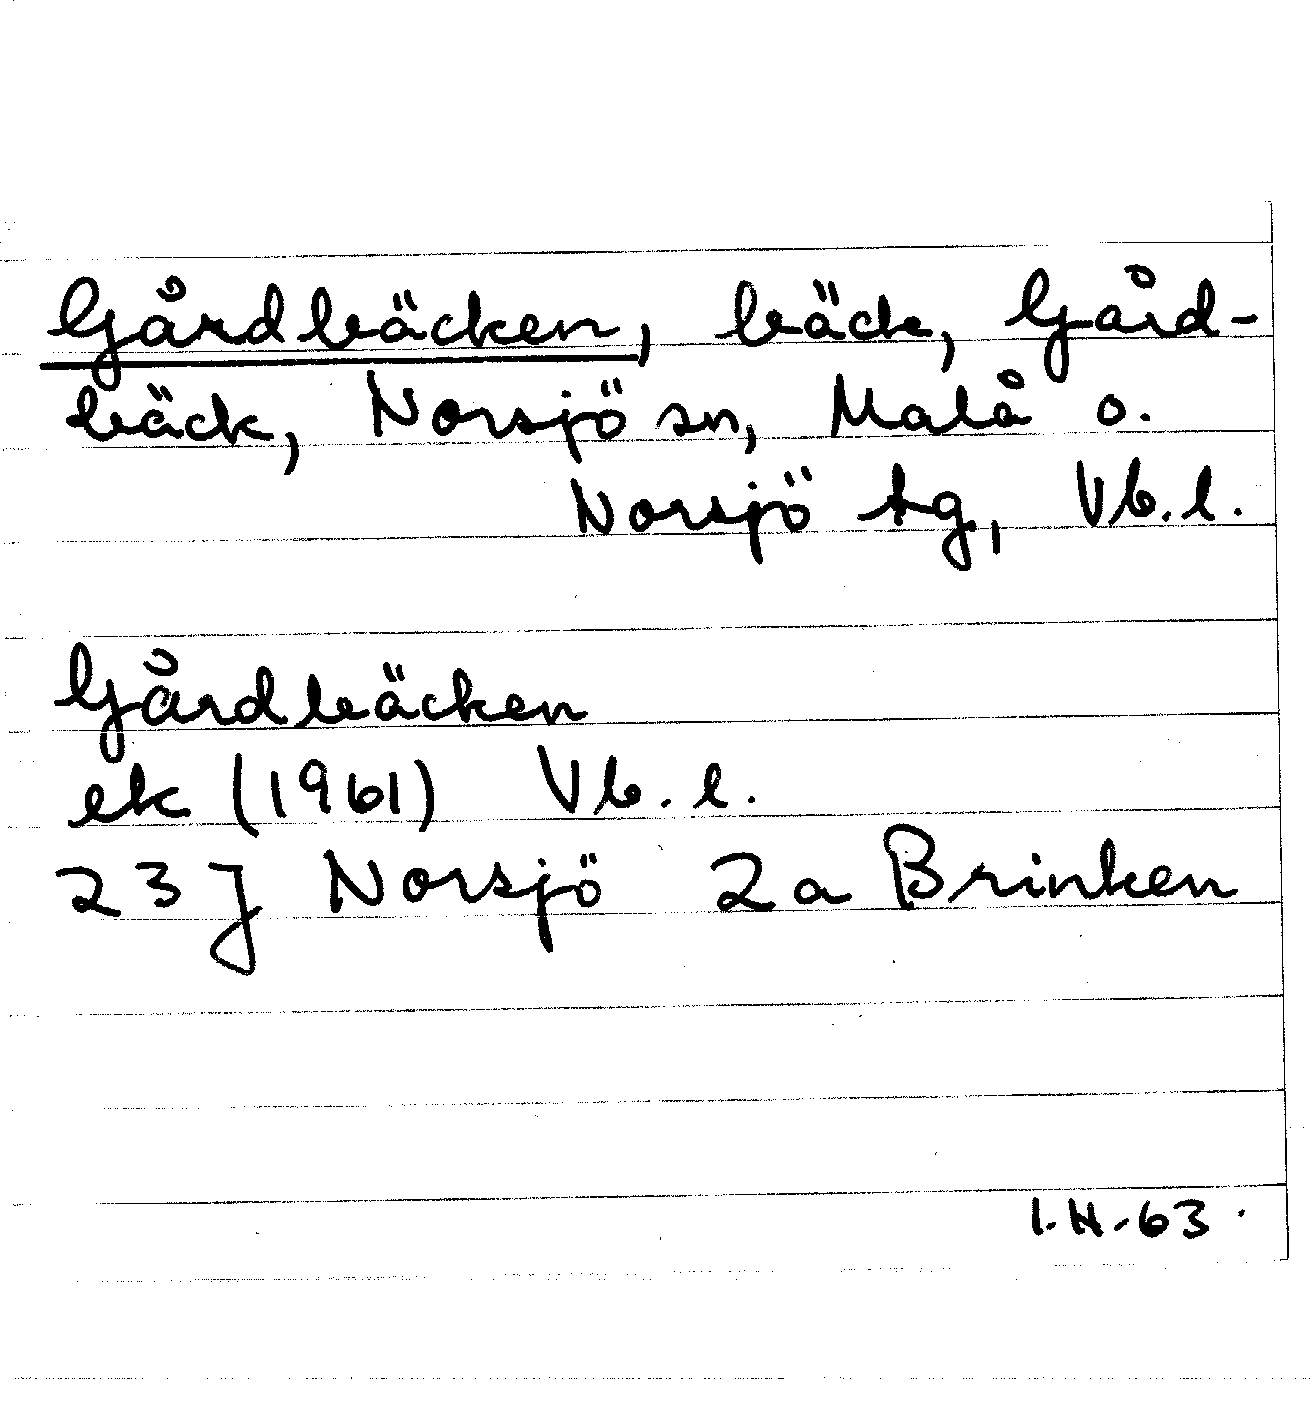 Gårdbäcken, bäck, Gård-
bäck, Norsjö sn, Malå o.
Norsjö tg, Vb. l.
Gårdbäcken
ek (1961) Vb. l.
23J Norsjö 2a Brinken
I.H.-63.